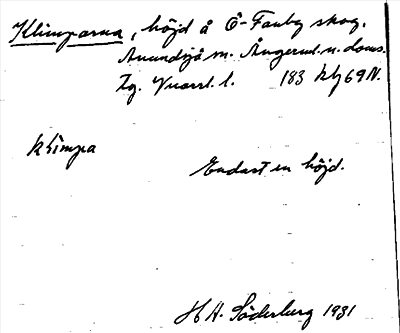 Klimparna, höjd å Ö-Fanby skog.
Anundsjö sn. Ångerm. n. doms.
Tg. Vnorrl. l. 183 Kbj 69 N.
klimpa
Endast en höjd.
H A. Söderberg 1931